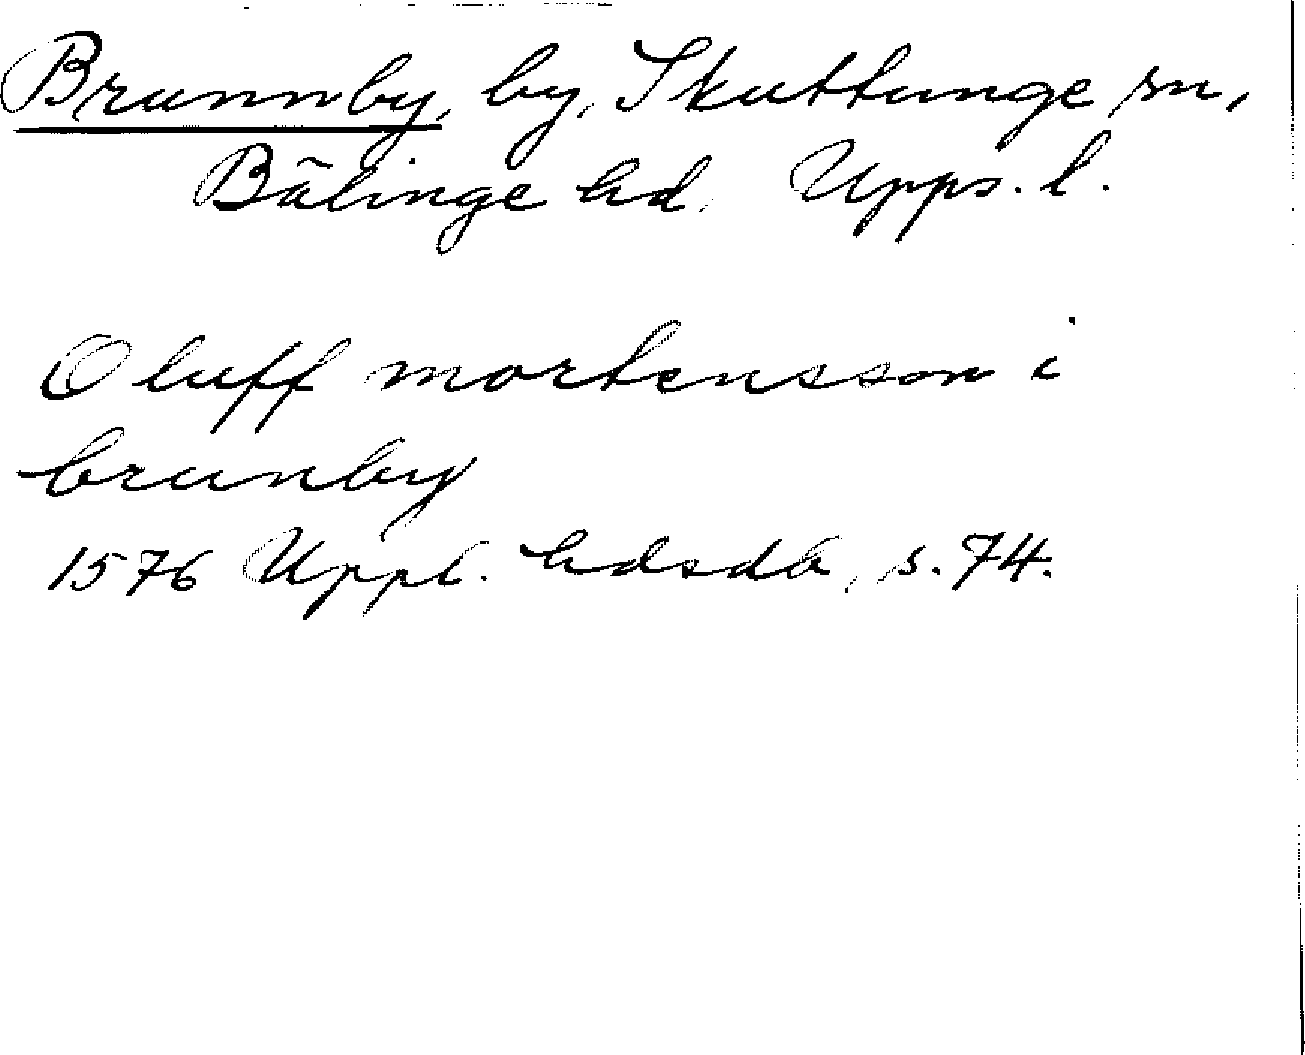 Brunnby, by, Skuttunge sn,
Bälinge hd, Upps. l.
Oluff mortensson i
brunby
1576 Uppl. hdsdb, s. 74.